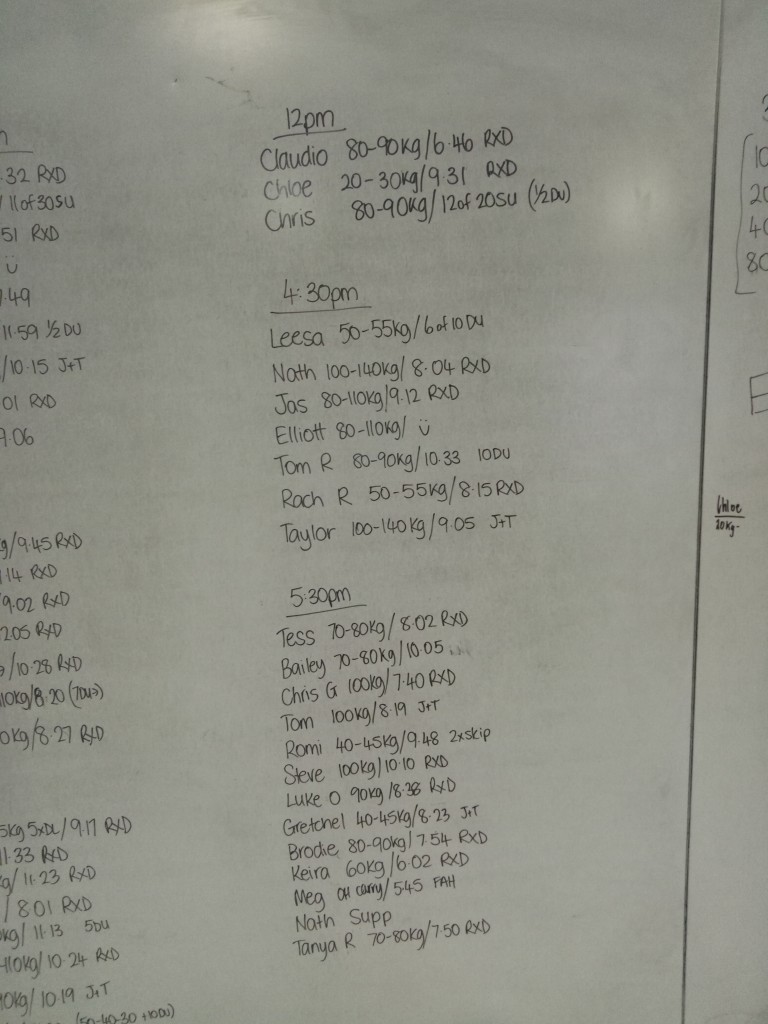 .32 RXD
/ 11 of 30SU
51 RXD
ü
.49
11.59 ½ DU
/10.15 J+T
01 RXD
9.06
g/9.45 RXD
14 RXD
9.02 RXD
2.05 RXD
/10.28 RXD
10kg/8.20
0kg/8.27 RXD
5kg 5xDL/9.17 RXD
11.33 RXD
kg/ 11.23 RXD
/ 8.01 RXD
0kg/ 11.13 5DU
-110kg/ 10.24 RXD
10kg/ 10.19 J+T
(50-40-30 +10DU)
12pm
Claudio 80-90kg/6.46 RXD
Chloe 20-30kg/9.31 RXD
Chris 80-90kg/ 12 of 20SU (½DU)
4:30pm
Leesa 50-55kg/6 of 10 DU
Nath 100-140kg/ 8.04 RXD
Jas 80-110kg/9.12 RXD
Elliott 80-110kg/ ü
Tom R 80-90kg/10.33 10DU
Rach R 50-55kg/8.15 RXD
Taylor 100-140kg/9.05 J+T
5:30pm
Tess 70-80kg/ 8.02 RXD
Bailey 70-80kg/10.05
Chris G 100kg/7.40 RXD
Tom 100kg/8.19 J+T
Romi 40-45kg/9.48 2xskip
Steve 100kg/10.10 RXD
Luke O 90kg/8.38 RXD
Gretchel 40-45kg/8.23 J+T
Brodie 80-90kg/ 7.54 RXD
Keira 60kg/6.02 RXD
Meg OH carry/ 5.45 FAH
Nath Supp
Tanya R 70-80kg/7.50 RXD
3
10
20
40
80
Chloe
20kg-